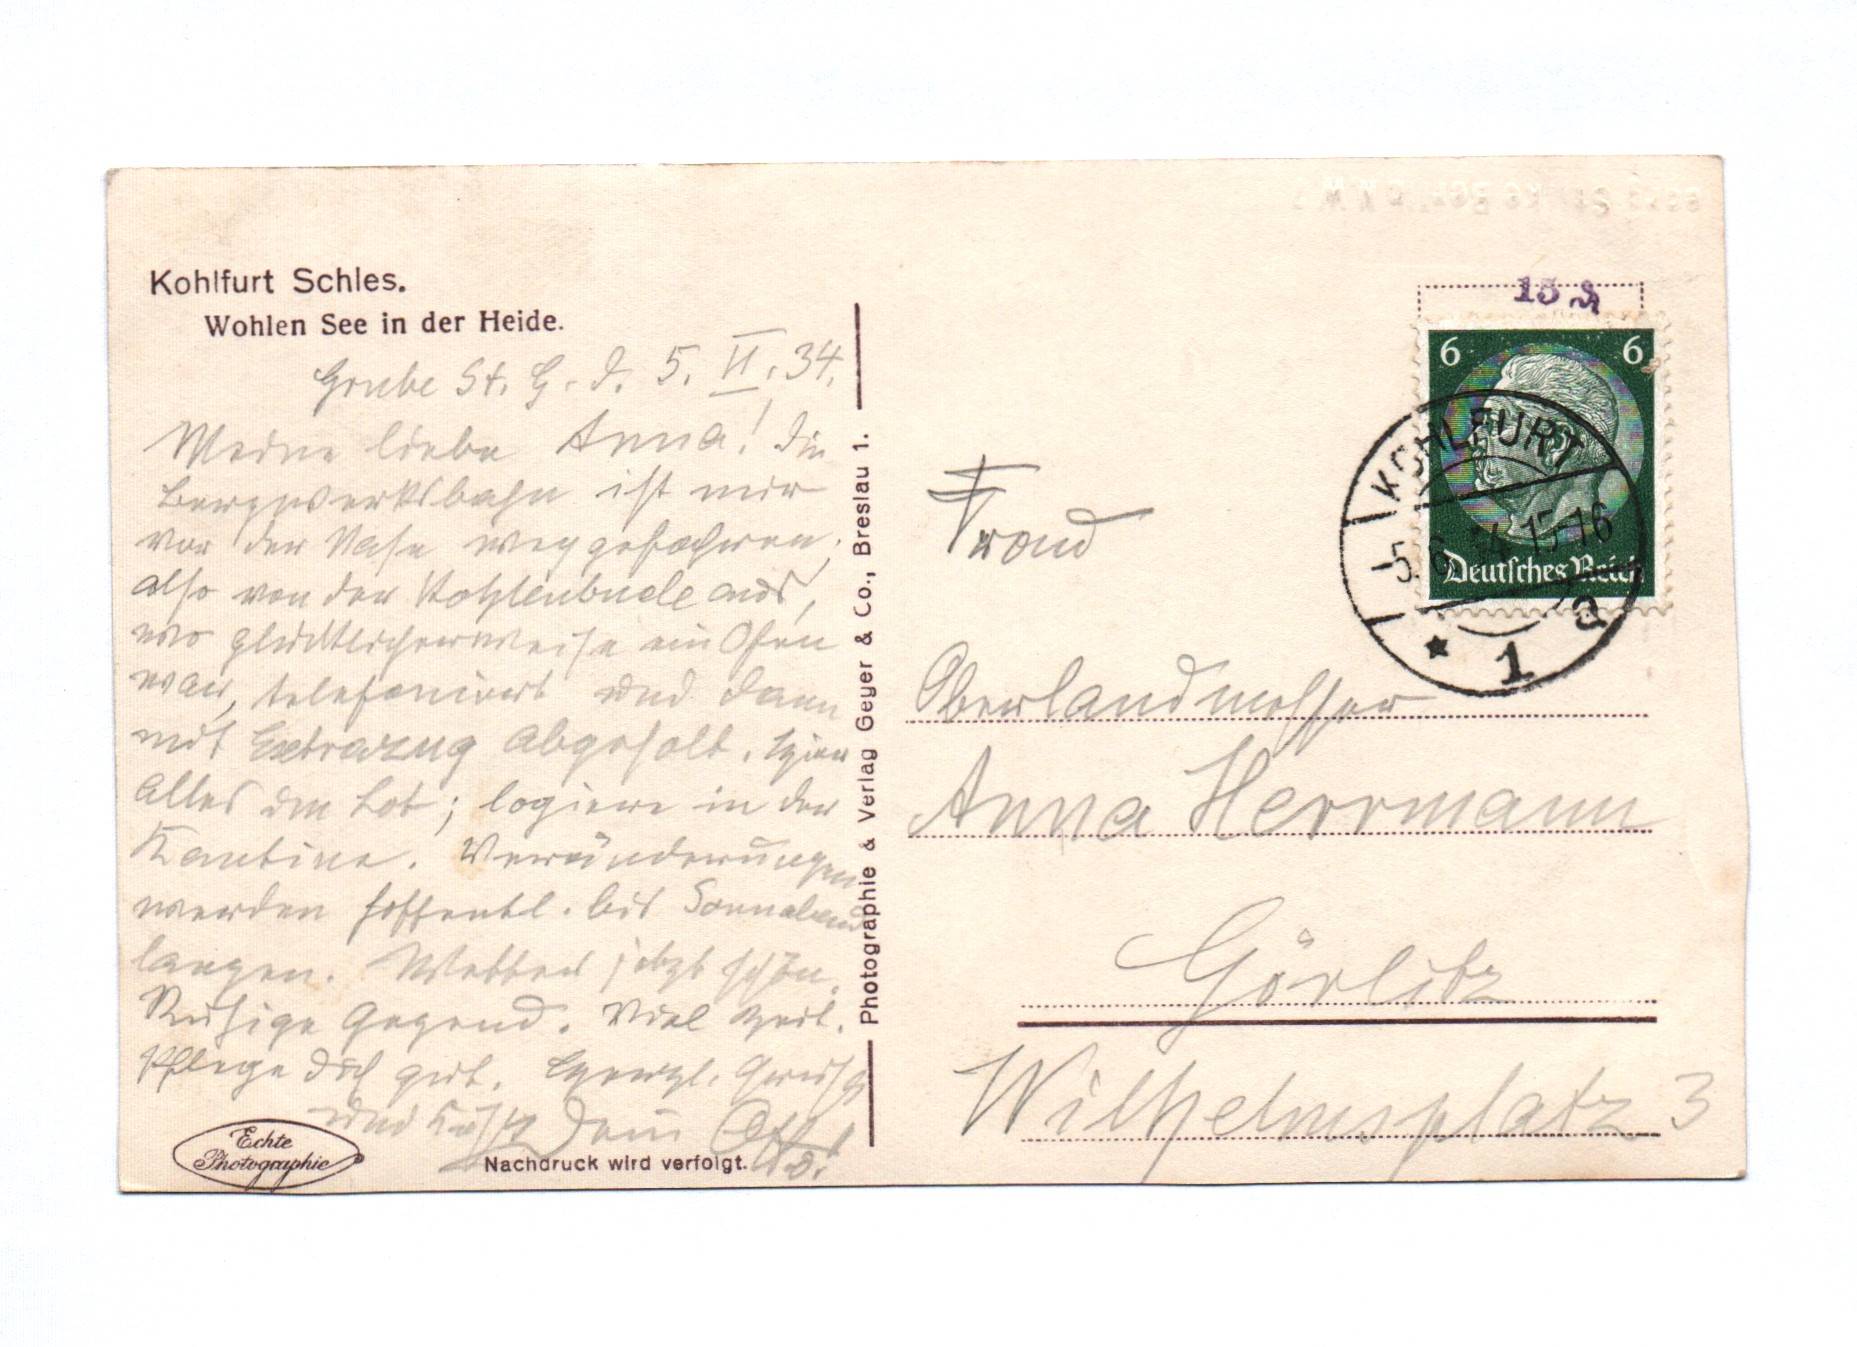 Kohlfurt Schles.
Wohlen See in der Heide.
Grube St. G. d. 5. VI. 34.
Meine liebe Anna! Die
Bergwerksbahn ist mir
vor der Nase weggefahren,
also von der Kohlenbude aus,
wo glücklicherweise ein Ofen
war, telefoniert und dann
mit Extrazug abgeholt. Hier
Alles im Lot; logiere in der
Kantine. Veränderungen
werden hoffentl. bis Sonnabend
langen. Wetter jetzt schön.
Ruhige Gegend. Viel Zeit.
Pflege dich gut. Herzl. Gruß
und Kuß Dein Otto.
Echte
Photographie
Nachdruck wird verfolgt.
Photographie & Verlag Geyer & Co., Breslau 1.
15
6 6
Deutsches Reich
KOHLFURT
5.6.34 15-16
* 1 a
Frau
Oberlandmesser
Anna Herrmann
Görlitz
Wilhelmsplatz 3